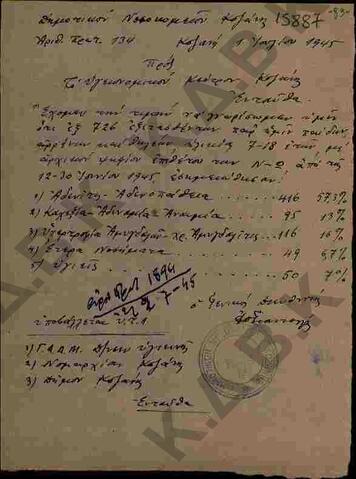 Δημοτικόν Νοσοκομείον Κοζάνης 15887
Αριθ. Πρωτ. 134 Κοζάνη 1 Ιουλίου 1945
Προς
Το Υγειονομικόν Κέντρον Κοζάνης
Ενταύθα
Έχομεν την τιμήν να γνωρίσωμεν υμίν
ότι εξ 726 εξετασθέντων παρ' ημίν παίδων
αρρένων και θηλέων ηλικίας 7-18 ετών με
αρχικόν ψηφίον επιθέτου των Ν-Ω από της
12-30 Ιουνίου 1945 εσημειώθησαν:
1) Αδενίτις - Αδενοπάθεια 416 57,3%
2) Καχεξία - Αδυναμία Αναιμία 95 13%
3) Υπερτροφία Αμυγδαλών χρ. Αμυγδαλίτις 116 16%
4) Έτερα Νοσήματα 49 6,7%
5) Υγιείς 50 7%
αριθ. πρωτ. 1894
2-7-45
Ο Γενικός Διευθυντής
υποβάλλεται
1) Γ.Δ.Δ.Μ. Δ/νσιν Υγιεινής
2) Νομαρχίαν Κοζάνης
3) Δήμον Κοζάνης
Ενταύθα
Κ.Δ.Β.Κ